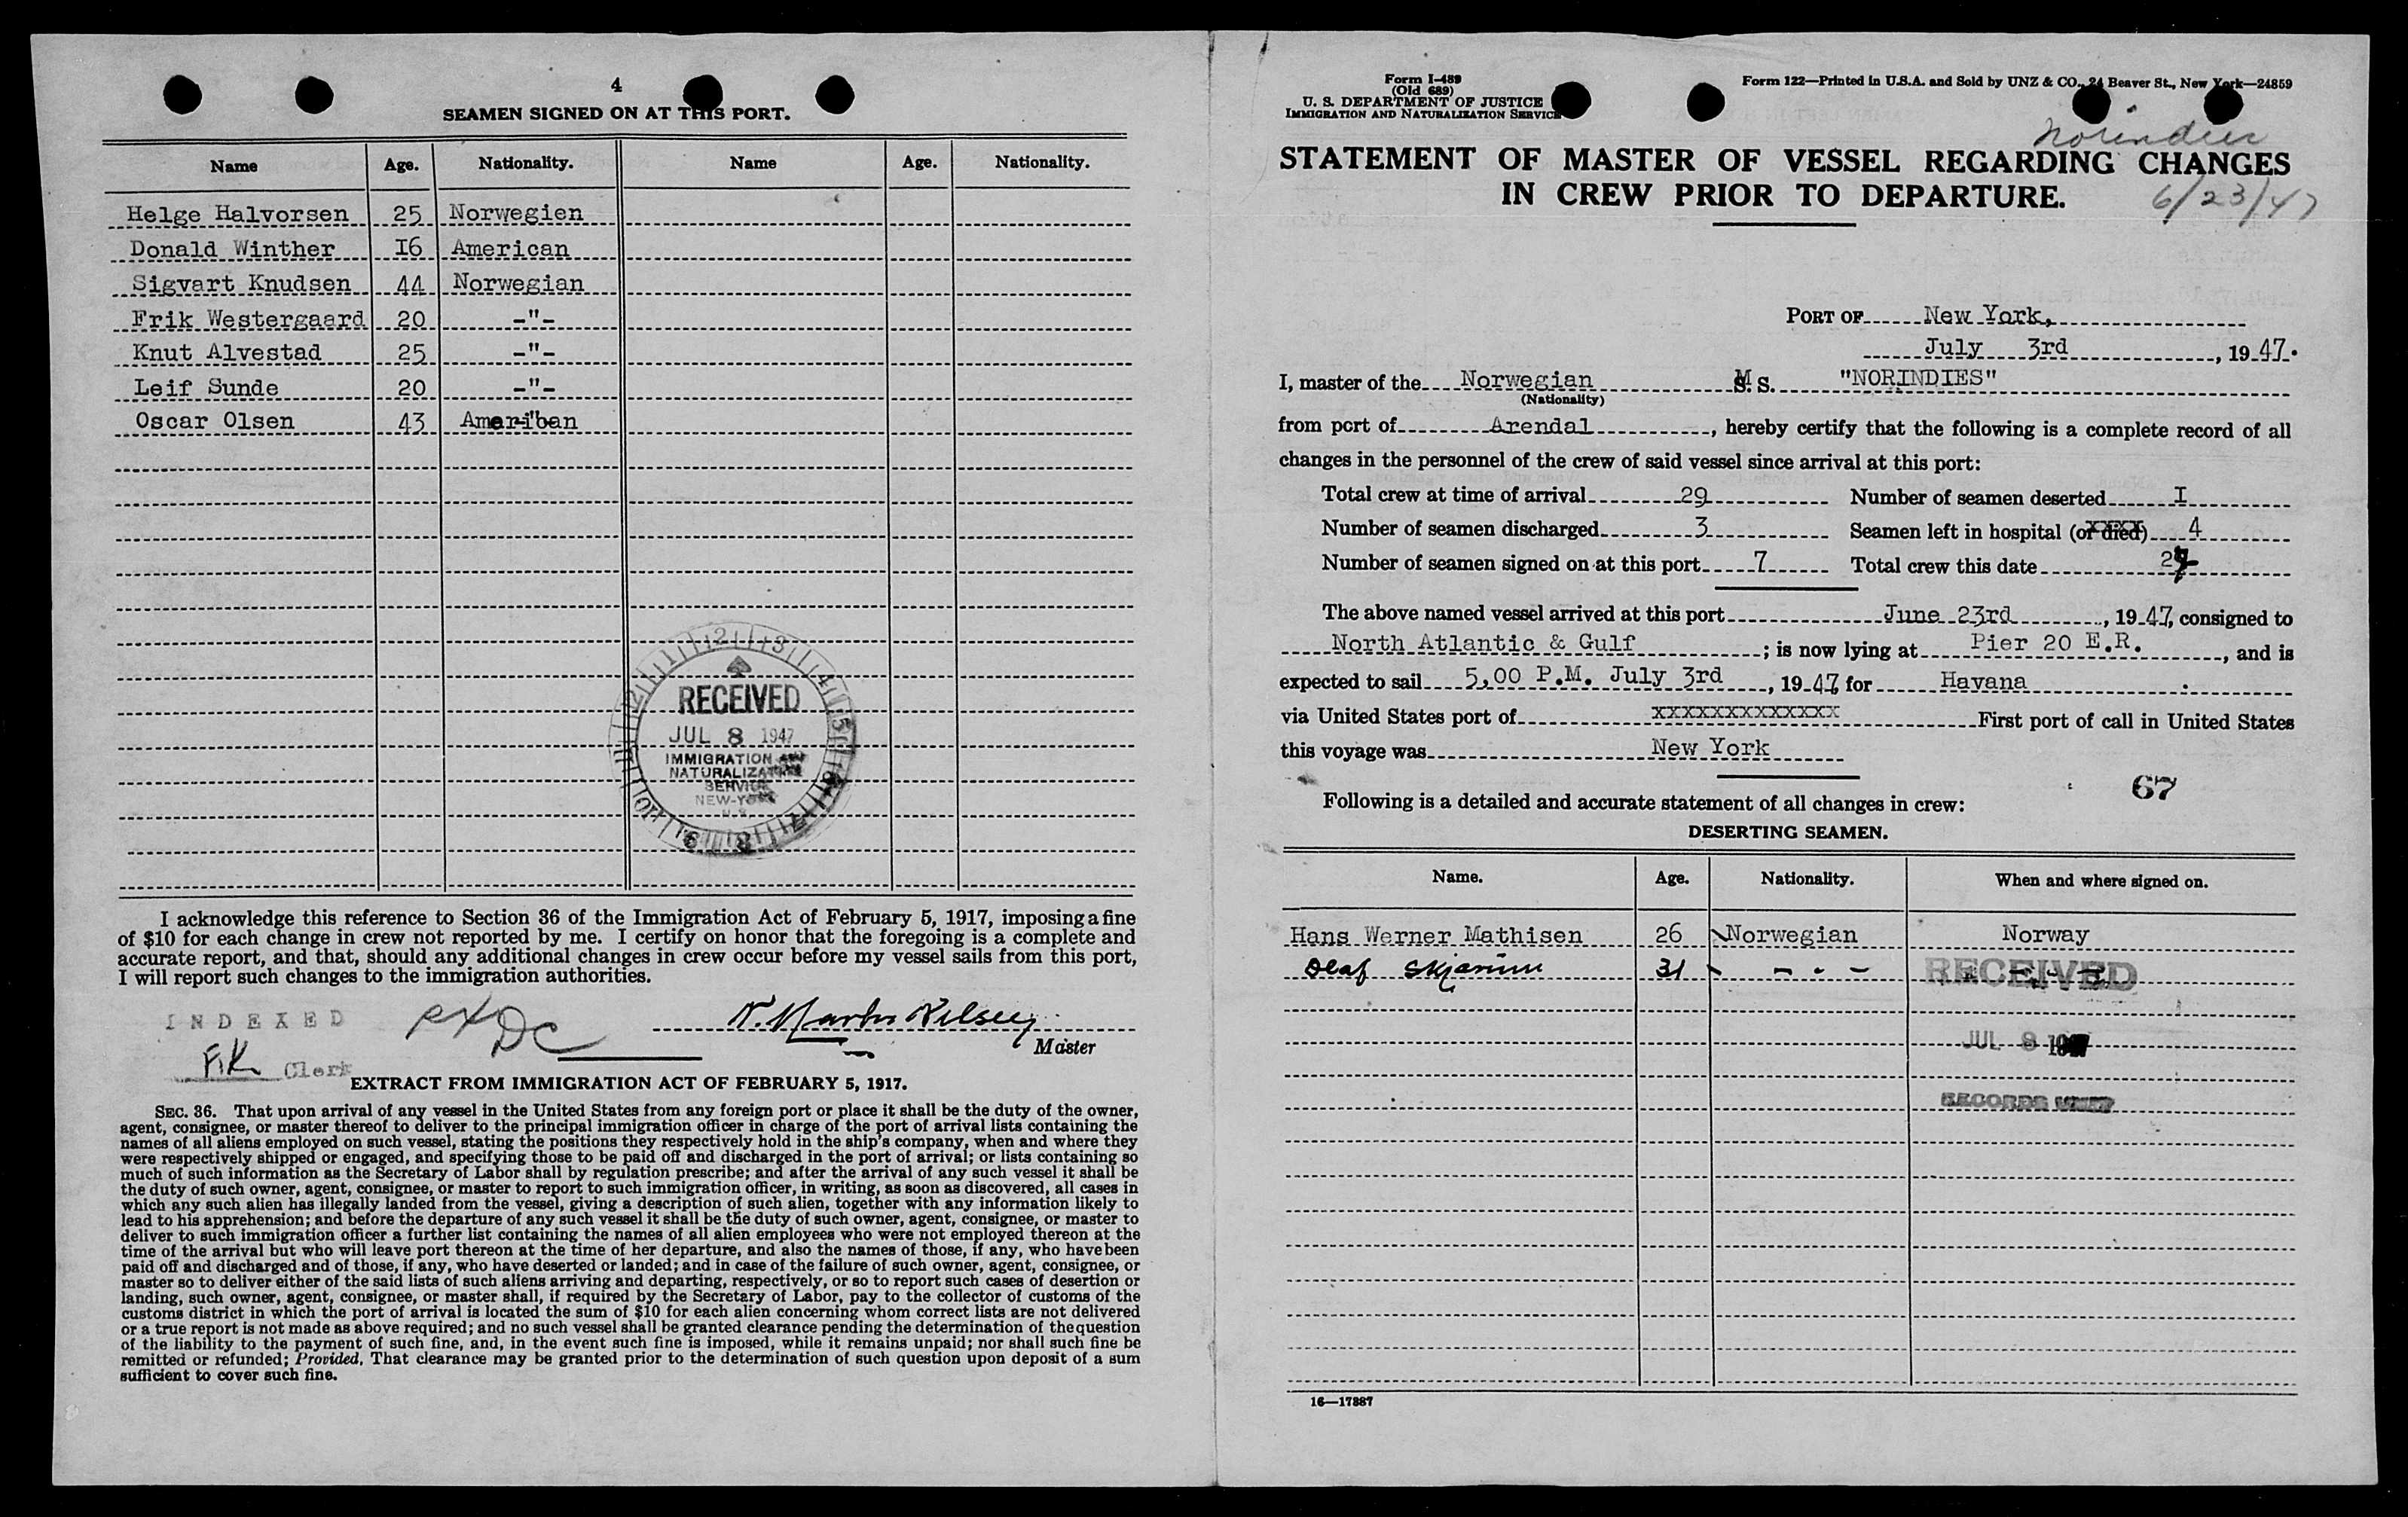 4
SEAMEN SIGNED ON AT THIS PORT.
Name Age. Nationality. Name Age. Nationality.
Helge Halvorsen 25 Norwegien
Donald Winther 16 American
Sigvart Knudsen 44 Norwegian
Frik Westergaard 20 -"-
Knut Alvestad 25 -"-
Leif Sunde 20 -"-
Oscar Olsen 43 American
RECEIVED
JUL 8 1947
IMMIGRATION AND
NATURALIZATION
SERVICE
NEW-YORK
I acknowledge this reference to Section 36 of the Immigration Act of February 5, 1917, imposing a fine
of $10 for each change in crew not reported by me. I certify on honor that the foregoing is a complete and
accurate report, and that, should any additional changes in crew occur before my vessel sails from this port,
I will report such changes to the immigration authorities.
INDEXED
Clerk
Master
EXTRACT FROM IMMIGRATION ACT OF FEBRUARY 5, 1917.
SEC. 36. That upon arrival of any vessel in the United States from any foreign port or place it shall be the duty of the owner,
agent, consignee, or master thereof to deliver to the principal immigration officer in charge of the port of arrival lists containing the
names of all aliens employed on such vessel, stating the positions they respectively hold in the ship's company, when and where they
were respectively shipped or engaged, and specifying those to be paid off and discharged in the port of arrival; or lists containing so
much of such information as the Secretary of Labor shall by regulation prescribe; and after the arrival of any such vessel it shall be
the duty of such owner, agent, consignee, or master to report to such immigration officer, in writing, as soon as discovered, all cases in
which any such alien has illegally landed from the vessel, giving a description of such alien, together with any information likely to
lead to his apprehension; and before the departure of any such vessel it shall be the duty of such owner, agent, consignee, or master to
deliver to such immigration officer a further list containing the names of all alien employees who were not employed thereon at the
time of the arrival but who will leave port thereon at the time of her departure, and also the names of those, if any, who have been
paid off and discharged and of those, if any, who have deserted or landed; and in case of the failure of such owner, agent, consignee, or
master so to deliver either of the said lists of such aliens arriving and departing, respectively, or so to report such cases of desertion or
landing, such owner, agent, consignee, or master shall, if required by the Secretary of Labor, pay to the collector of customs of the
customs district in which the port of arrival is located the sum of $10 for each alien concerning whom correct lists are not delivered
or a true report is not made as above required; and no such vessel shall be granted clearance pending the determination of the question
of the liability to the payment of such fine, and, in the event such fine is imposed, while it remains unpaid; nor shall such fine be
remitted or refunded; Provided, That clearance may be granted prior to the determination of such question upon deposit of a sum
sufficient to cover such fine.
Form I-489
(Old 689)
U. S. DEPARTMENT OF JUSTICE
IMMIGRATION AND NATURALIZATION SERVICE
Form 122—Printed in U.S.A. and Sold by UNZ & CO., 24 Beaver St., New York—24859
Norindies
STATEMENT OF MASTER OF VESSEL REGARDING CHANGES
IN CREW PRIOR TO DEPARTURE.
6/23/47
PORT OF New York,
July 3rd, 1947.
I, master of the Norwegian M S. "NORINDIES"
(Nationality)
from port of Arendal, hereby certify that the following is a complete record of all
changes in the personnel of the crew of said vessel since arrival at this port:
Total crew at time of arrival 29 Number of seamen deserted I
Number of seamen discharged 3 Seamen left in hospital (or died) 4
Number of seamen signed on at this port 7 Total crew this date 27
The above named vessel arrived at this port June 23rd, 1947, consigned to
North Atlantic & Gulf; is now lying at Pier 20 E.R., and is
expected to sail 5,00 P.M. July 3rd, 1947 for Havana
via United States port of XXXXXXXXXXXXX First port of call in United States
this voyage was New York
67
Following is a detailed and accurate statement of all changes in crew:
DESERTING SEAMEN.
Name. Age. Nationality. When and where signed on.
Hans Werner Mathisen 26 Norwegian Norway
Olaf 31 - " -
RECEIVED
JUL 8 1947
RECORDS UNIT
16—17887